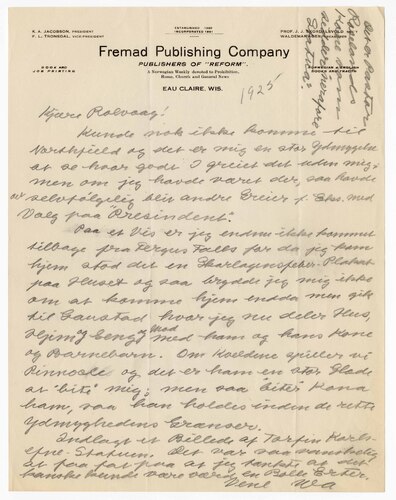 K. A. JACOBSON, PRESIDENT
F. L. TRONSDAL, VICE PRESIDENT
ESTABLISHED
INCORPORATED
PROF. J. J.
Fremad Publishing Company
PUBLISHERS OF "REFORM"
BOOK AND
JOB PRINTING
a Norwegian Weekly devoted to Prohibition,
Home, Church and General News
NORWEGIAN & ENGLISH
BOOKS AND TRACTS
EAU CLAIRE, WIS.
1925
Kjære Rolvaag!
Kunde nok ikke komme til
Northfield og det er mig en stor Ydmygelse
at se hvor godt I greiet det uden mig,
men om jeg havde været der, saa havde
selvfølgelig blit andre Greier f. Eks. med
Valg paa "Præsident".
Paa et Vis er jeg endnu ikke kommet
tilbage fra Fergus Falls for da jeg kom
hjem stod det en Skarlagensfeber-Plakat
paa Huset og saa brydde jeg mig ikke
om at komme hjem endda men gik
til Gaustad hvor jeg nu deler Hus,
Hjem, Seng og Mad med ham og hans Kone
og Barnebarn. Om Kvældene spiller vi
Pinnocle og det er ham en stor Glæde
at "bite" mig; men saa "biter" Kona
ham, saa han holdes inden de rette
Ydmyghedens Grænser.
Indlagt et Billede af Torfin Karls-
efne-Statuen. Det var saa vanskelig
at faa fat paa at jeg tænkte at det
kanske kunde være værd en Bolle Erter.
Venl Wa